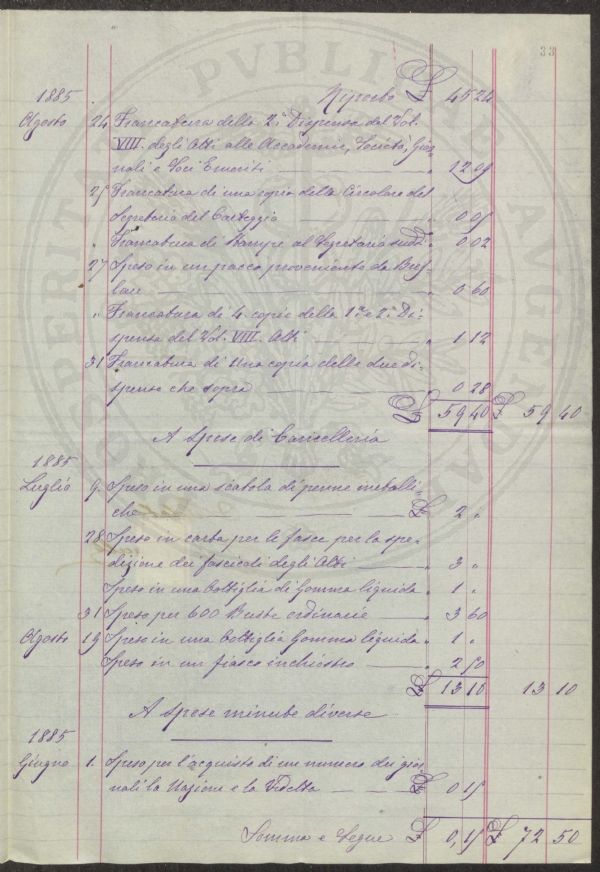 33
1885 Riporto £ 45 24
Agosto 24 Francatura della 2ª Dispensa del Vol.
VIII. degli Atti alle Accademie, Società, Gior=
nali e Soci Emeriti — „ 12 09
25 Francatura di una copia della Circolare del
Segretario del Carteggio — „ 0 05
„ Francatura di Stampe al Segretario sudd. „ 0 02
27 Speso in un pacco proveniente da Bres=
lau — „ 0 60
„ Francatura di 4 copie della 1ª e 2ª Di=
spensa del Vol. VIII. Atti — „ 1 12
31 Francatura di una copia delle due di=
spense che sopra — „ 0 28
£ 59 40 £ 59 40
A spese di Cancelleria
1885
Luglio 9. Speso in una scatola di penne metalli=
che — £ 2 „
28 Speso in carta per le fasce per la spe=
dizione dei fascicoli degli Atti — „ 3 „
Speso in una bottiglia di Gomma liquida „ 1 „
31 Speso per 600 Buste ordinarie — „ 3 60
Agosto 19 Speso in una bottiglia Gomma liquida „ 1 „
Speso in un fiasco inchiostro — „ 2 50
£ 13 10 13 10
A spese minute diverse
1885
Giugno 1. Speso per l'acquisto di un numero dei gior=
nali la Nazione e la Vedetta — £ 0 15
Somma e Segue £ 0,15 £ 72 50
PVBLICAE